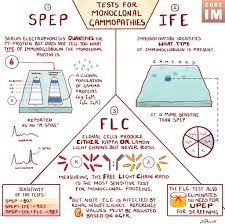 TESTS FOR
MONOCLONAL
GAMMOPATHIES
CORE
IM
① SPEP
② IFE
SERUM ELECTROPHORESIS QUANTIFIES THE
M-PROTEIN BUT DOES NOT TELL YOU WHAT
TYPE OF IMMUNOGLOBULIN THE MONOCLONAL
PROTEIN IS
IMMUNOFIXATION IDENTIFIES
WHAT TYPE
OF IMMUNOGLOBULIN IS PRESENT
A CLONAL
POPULATION
OF GAMMA
PROTEINS
REPORTED
AS AN "M-SPIKE"
IT IS MORE SENSITIVE
THAN SPEP
③
FLC
CLONAL CELLS PRODUCE
EITHER KAPPA OR LAMBDA
LIGHT CHAINS BUT NOT BOTH.
MEASURING THE FREE LIGHT CHAIN RATIO
IS THE MOST SENSITIVE TEST
FOR MONOCLONAL PROTEINS,
BUT NOTE: FLC IS AFFECTED BY
RENAL INSUFFICIENCY. REFERENCE
VALUES MUST BE ADJUSTED
BASED ON eGFR
SENSITIVITY
OF THE TESTS:
THE FLC TEST ALSO
ELIMINATES THE
NEED FOR UPEP
FOR SCREENING